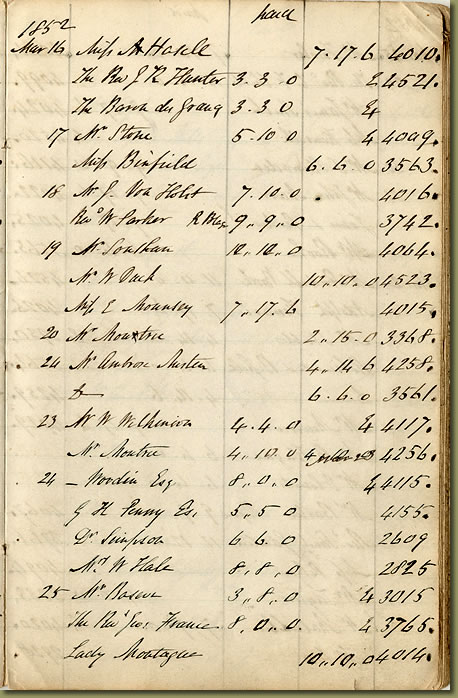 paid
1852
Mar 16 Miss A Hasell 7.17.6 4010.
The Rev J R Hunter 3.3.0 4521.
The Baron de 3.3.0
17 Mr Stone 5.10.0 4009.
Miss Binfield 6.6.0 3563.
18 Mr J. Von Holst 7.10.0 4016.
Revd W Parker 9.,9.,0 3742.
19 Mr Southan 4064.
Mr W Pack 10.,10.,0 4523.
Miss E Mounsey 7.,17.6 4015.
20 Mr 2.,15.0 3368.
24 Mr Ambrose Austen 4.,14.6 4258.
6.6.0 3561.
23 Mr W Wilkinson 4.4.0 4117.
Mr 4.,10.0 4256.
24 – Woodin Esq 8.,0.,0 4115.
G H Penny Es. 5.,5.0 4155.
Dr Simpson 6.6.0 2609
Mr W Hale 8.,8.,0 2825
25 Mr 3.,8.,0 3015
The Revd Geo. France 8.,0.,0 3765.
Lady Montague 10.,10.,0 4014.